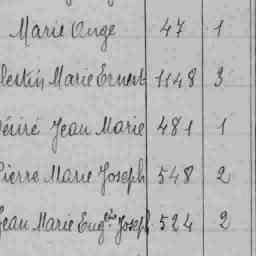 Marie Ange 47 1
Marie Ernest 1148 3
Désiré Jean Marie 481 1
Pierre Marie Joseph 548 2
Jean Marie Eugène Joseph 524 2